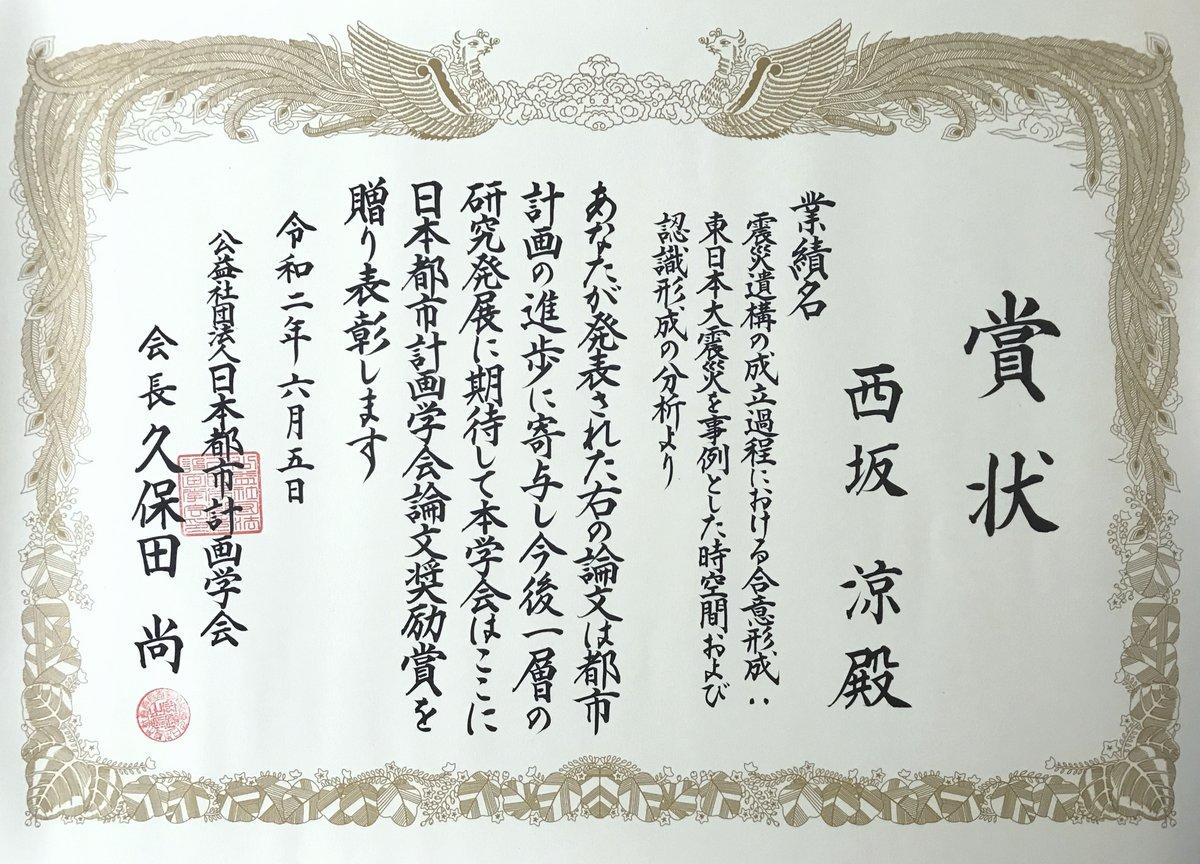 賞状
西坂 涼殿
業績名
震災遺構の成立過程における合意形成：
東日本大震災を事例とした時空間および
認識形成の分析より
あなたが発表された右の論文は都市
計画の進歩に寄与し今後一層の
研究発展に期待して本学会はここに
日本都市計画学会論文奨励賞を
贈り表彰します
令和二年 六月五日
公益社団法人日本都市計画学会
会長 久保田 尚